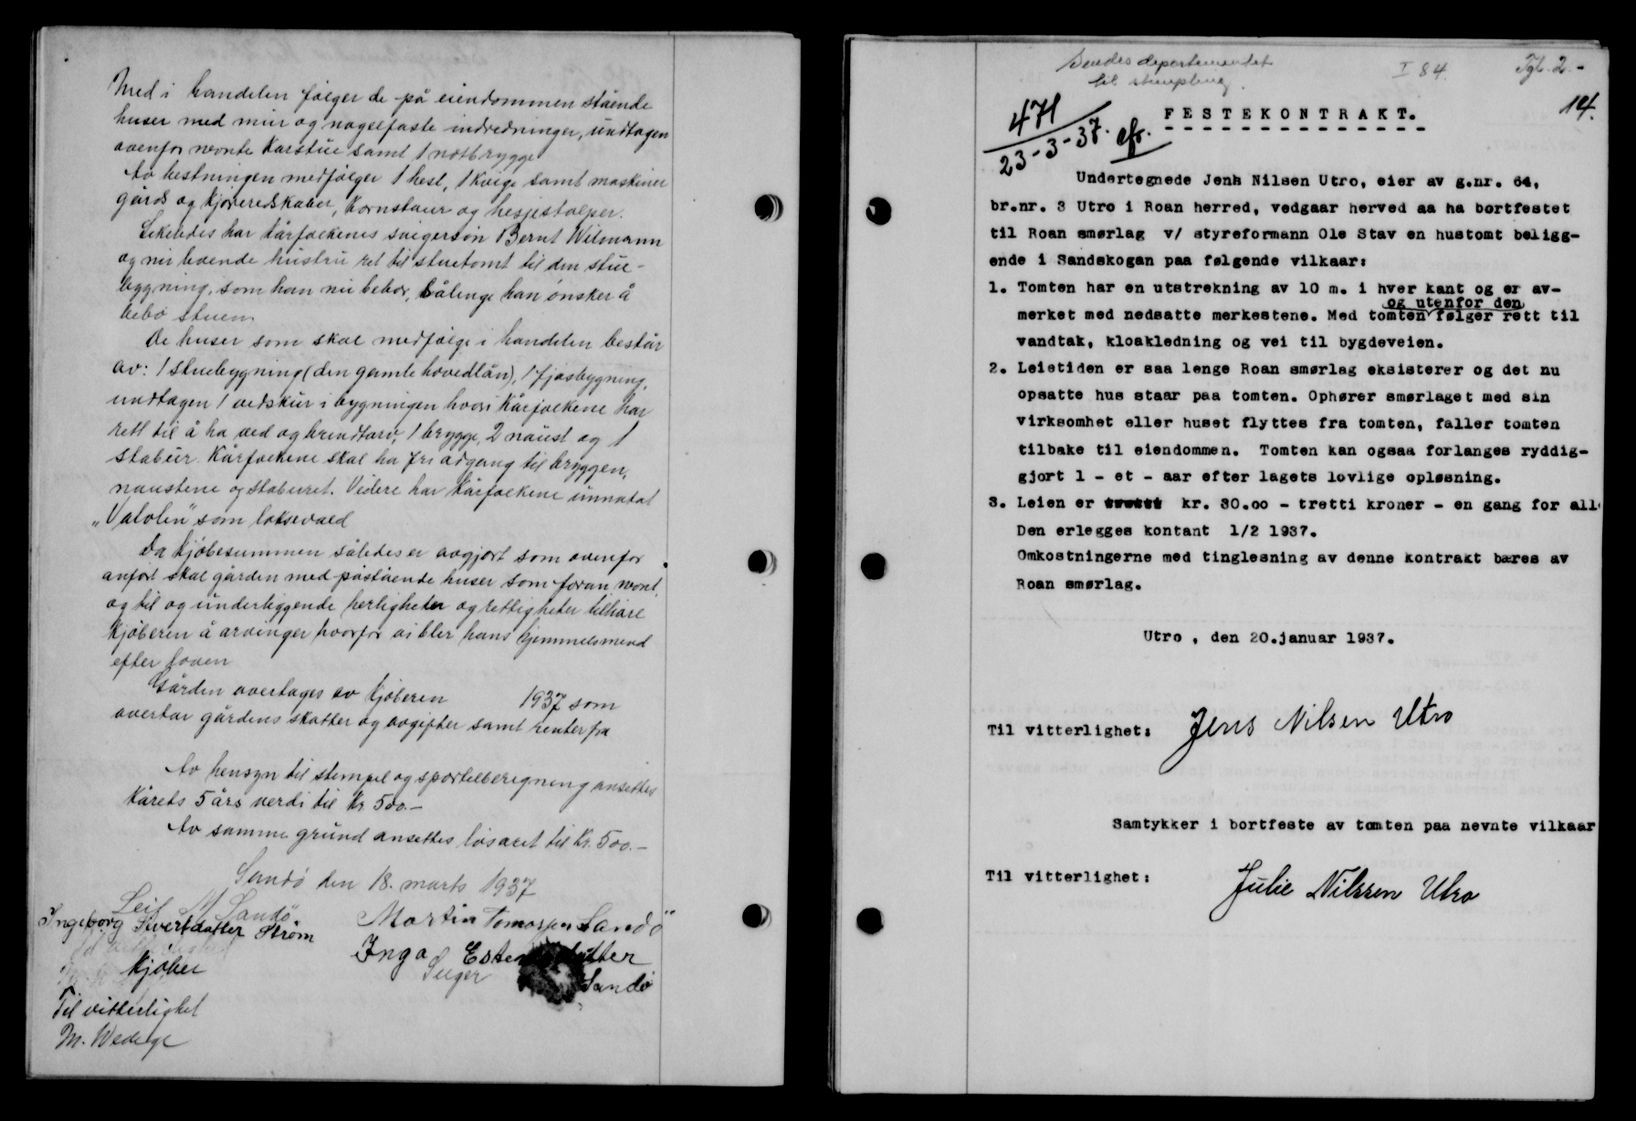 Med i handelen følger de på eiendommen stående
huser med mur og nagelfaste indredninger, undtagen
ovenfor nevnte karstue samt 1 notbrygge
Av besetningen medfølger 1 hest, 1 kvige samt maskiner
gårds og kjøreredskaber, kornstaur og hesjestolper.
Likeledes har kårfolkenes svigersøn Bernt Wilmann
og nu levende hustru ret til stuetomt til den stue-
bygning, som han nu bebor, sålenge han ønsker å
bebo stuen.
De huser som skal medfølge i handelen består
av: 1 stuebygning (den gamle hovedlån), 1 fjøsbygning,
undtagen 1 vedskur i bygningen hvori kårfolkene har
rett til å ha ved og brendtorv, 1 brygge, 2 naust og 1
stabur. Kårfolkene skal ha fri adgang til bryggen,
naustene og staburet. Videre har kårfolkene unnatat
"Valolen" som laksevald
Da kjøbesummen således er avgjort som ovenfor
anført skal gården med påstående huser som foran nevnt,
og til og underliggende herligheter og rettigheter tilhøre
kjøberen å arvinger hvorfor vi bler hans hjemmelsmend
efter loven
Gården overtages av kjøberen 1937 som
overtar gårdens skatter og avgifter samt renter fra
Av hensyn til stempel og sportelberegning ansettes
kårets 5 års verdi til kr 500.-
Av samme grund ansettes løsøret til kr. 500.-
Sandø den 18. marts 1937
Leif M Sandø
Ingeborg Sivertdatter Strøm
Kjøber
Martin Tomassen Sandö
Inga
Selger
Sandø
Til vitterlighet
M. Wedege
Sendes departementet
til stempling.
I 84.
Tgl. 2.-
14.
471
23-3-37. efr.
FESTEKONTRAKT.
Undertegnede Jenh Nilsen Utro, eier av g.nr. 64,
br.nr. 3 Utro i Roan herred, vedgaar herved aa ha bortfestet
til Roan smørlag v/ styreformann Ole Stav en hustomt beligg-
ende i Sandskogan paa følgende vilkaar:
1. Tomten har en utstrekning av 10 m. i hver kant og er av-
og utenfor den
merket med nedsatte merkestene. Med tomten følger rett til
vandtak, kloakledning og vei til bygdeveien.
2. Leietiden er saa lenge Roan smørlag eksisterer og det nu
opsatte hus staar paa tomten. Ophører smørlaget med sin
virksomhet eller huset flyttes fra tomten, faller tomten
tilbake til eiendommen. Tomten kan ogsaa forlanges ryddig-
gjort 1 - et - aar efter lagets lovlige opløsning.
3. Leien er kr. 30.oo - tretti kroner - en gang for alle
Den erlegges kontant 1/2 1937.
Omkostningerne med tinglesning av denne kontrakt bæres av
Roan smørlag.
Utro , den 20.januar 1937.
Til vitterlighet: Jens Nilsen Utro
Samtykker i bortfeste av tomten paa nevnte vilkaar
Til vitterlighet: Julie Nilssen Utro